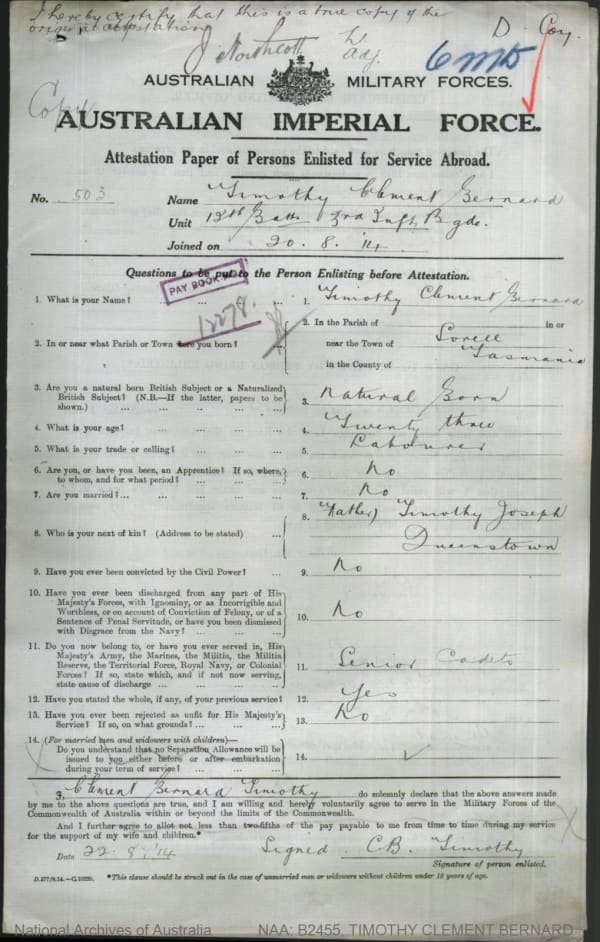 I hereby certify that this is a true copy of the
original attestation
D Coy.
J Northcott Lt
adj.
6 MD
Copy
AUSTRALIAN MILITARY FORCES.
AUSTRALIAN IMPERIAL FORCE.
Attestation Paper of Persons Enlisted for Service Abroad.
No. 503 Name Timothy Clement Bernard
Unit 12th Battn 3rd Inft. Bgde.
Joined on 20. 8. '14
Questions to be put to the Person Enlisting before Attestation.
PAY BOOK
12278.
1. What is your Name? ... ... ... ... 1. Timothy Clement Bernard
2. In or near what Parish or Town were you born? 2. In the Parish of in or
near the Town of Sorell
in the County of Tasmania
3. Are you a natural born British Subject or a Naturalized
British Subject? (N.B.—If the latter, papers to be
shown.) ... ... ... ... 3. Natural Born
4. What is your age? ... ... ... ... 4. Twenty three
5. What is your trade or calling? ... ... ... 5. Labourer
6. Are you, or have you been, an Apprentice? If so, where,
to whom, and for what period? ... ... ... 6. No
7. Are you married?... ... ... ... ... 7. No
8. Who is your next of kin? (Address to be stated) ... 8. (Father) Timothy Joseph
Queenstown
9. Have you ever been convicted by the Civil Power? ... 9. No
10. Have you ever been discharged from any part of His
Majesty's Forces, with Ignominy, or as Incorrigible and
Worthless, or on account of Conviction of Felony, or of a
Sentence of Penal Servitude, or have you been dismissed
with Disgrace from the Navy? ... ... ... 10. No
11. Do you now belong to, or have you ever served in, His
Majesty's Army, the Marines, the Militia, the Militia
Reserve, the Territorial Force, Royal Navy, or Colonial
Forces? If so, state which, and if not now serving,
state cause of discharge ... ... ... ... 11. Senior Cadets
12. Have you stated the whole, if any, of your previous service? 12. Yes
13. Have you ever been rejected as unfit for His Majesty's
Service? If so, on what grounds? ... ... ... 13. No
14. (For married men and widowers with children)—
Do you understand that no Separation Allowance will be
issued to you either before or after embarkation
during your term of service? ... ... ... 14.
I, Clement Bernard Timothy do solemnly declare that the above answers made
by me to the above questions are true, and I am willing and hereby voluntarily agree to serve in the Military Forces of the
Commonwealth of Australia within or beyond the limits of the Commonwealth.
And I further agree to allot not less than two-fifths of the pay payable to me from time to time during my service
for the support of my wife and children.*
Date 22. 8. '14 Signed C.B. Timothy
Signature of person enlisted.
D.277/8.14.—C.10220. *This clause should be struck out in the case of unmarried men or widowers without children under 18 years of age.
National Archives of Australia NAA: B2455, TIMOTHY CLEMENT BERNARD